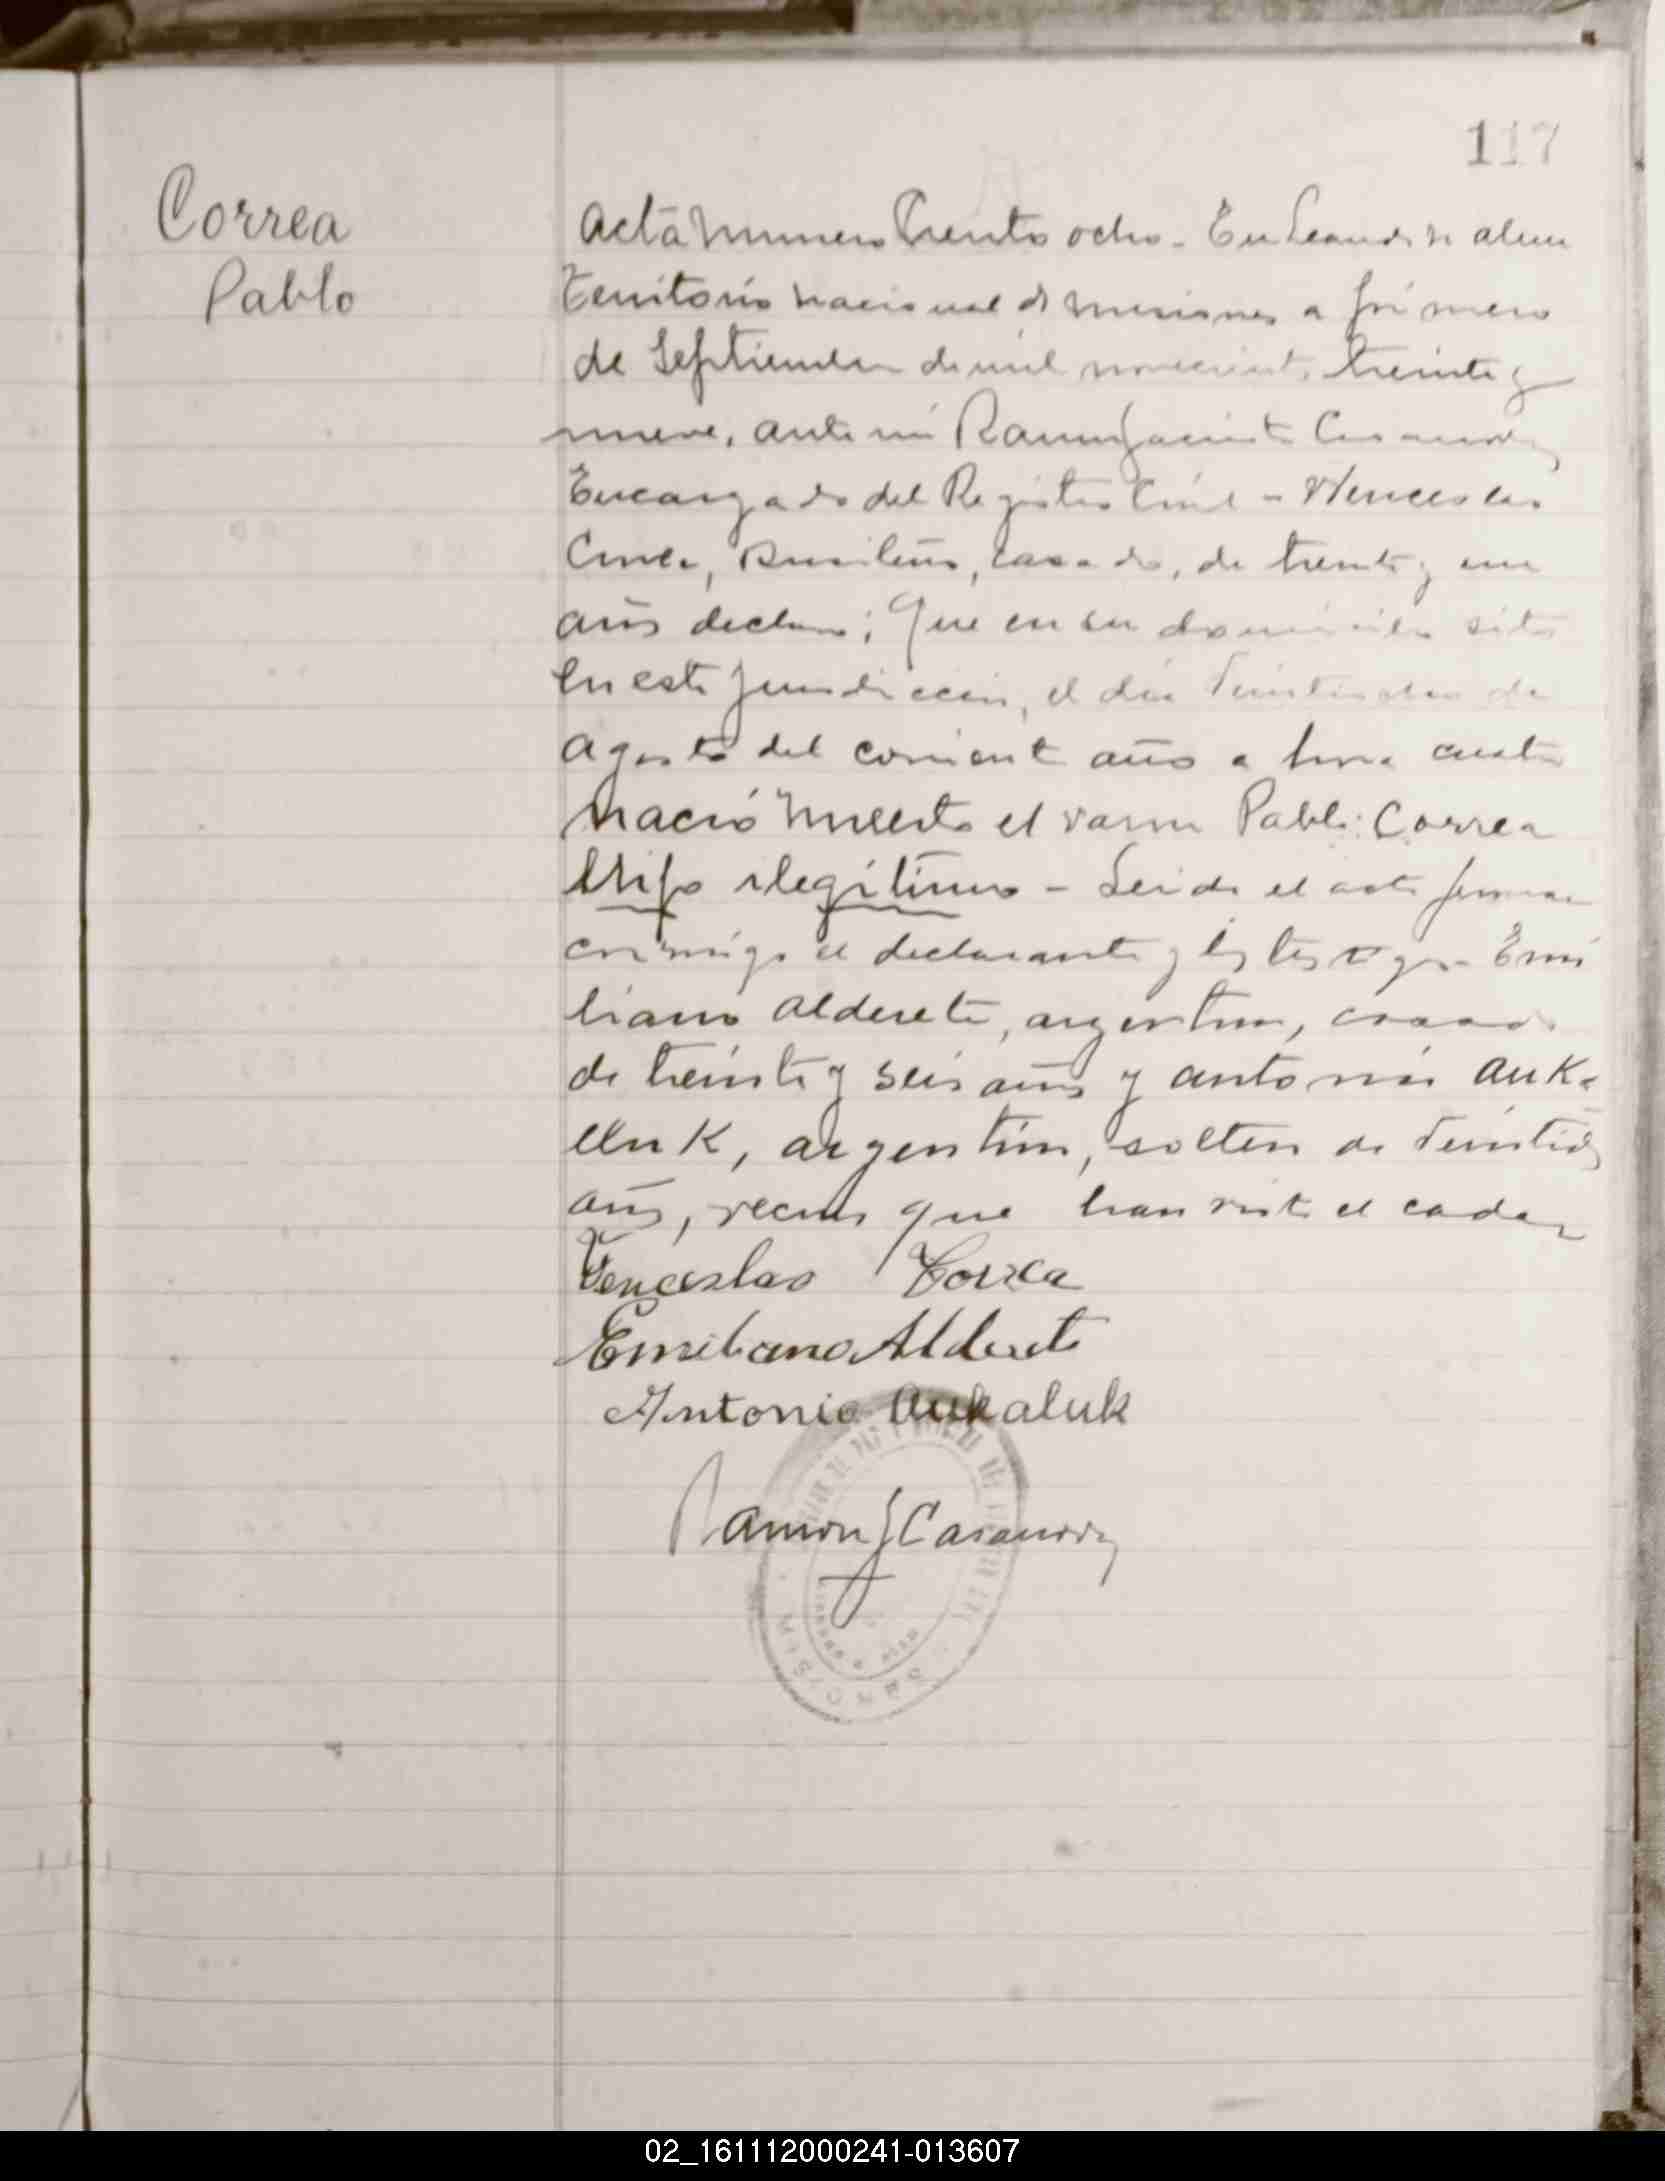 117
Correa
Pablo
Acta Numero Treinta ocho - En Leandro n alem
Territorio nacional de misiones a primero
de Septiembre de mil novecients treinta y
nueve, ante mi Ramon Jacinto Casanova
Encargado del Registro Civil - Wenceslao
Correa, Brasileño, casado, de treinta y un
años declara: Que en su domicilio sito
en esta jurisdiccion, el dia veintiocho de
Agosto del corriente año a hora cuatro
nació muerto el varon Pablo Correa
hijo ilegitimo - Leida el acta firman
conmigo el declarante y los testigos Emi
liano Alderete, argentino, casado
de treinta y seis años y antonio auka
luk, argentino, soltero de veintidos
años, vecinos que han visto el cadaver
Venceslao Correa
Emiliano Alderete
Antonio Aukaluk
Ramon J Casanova
MISIONES
02_161112000241-013607